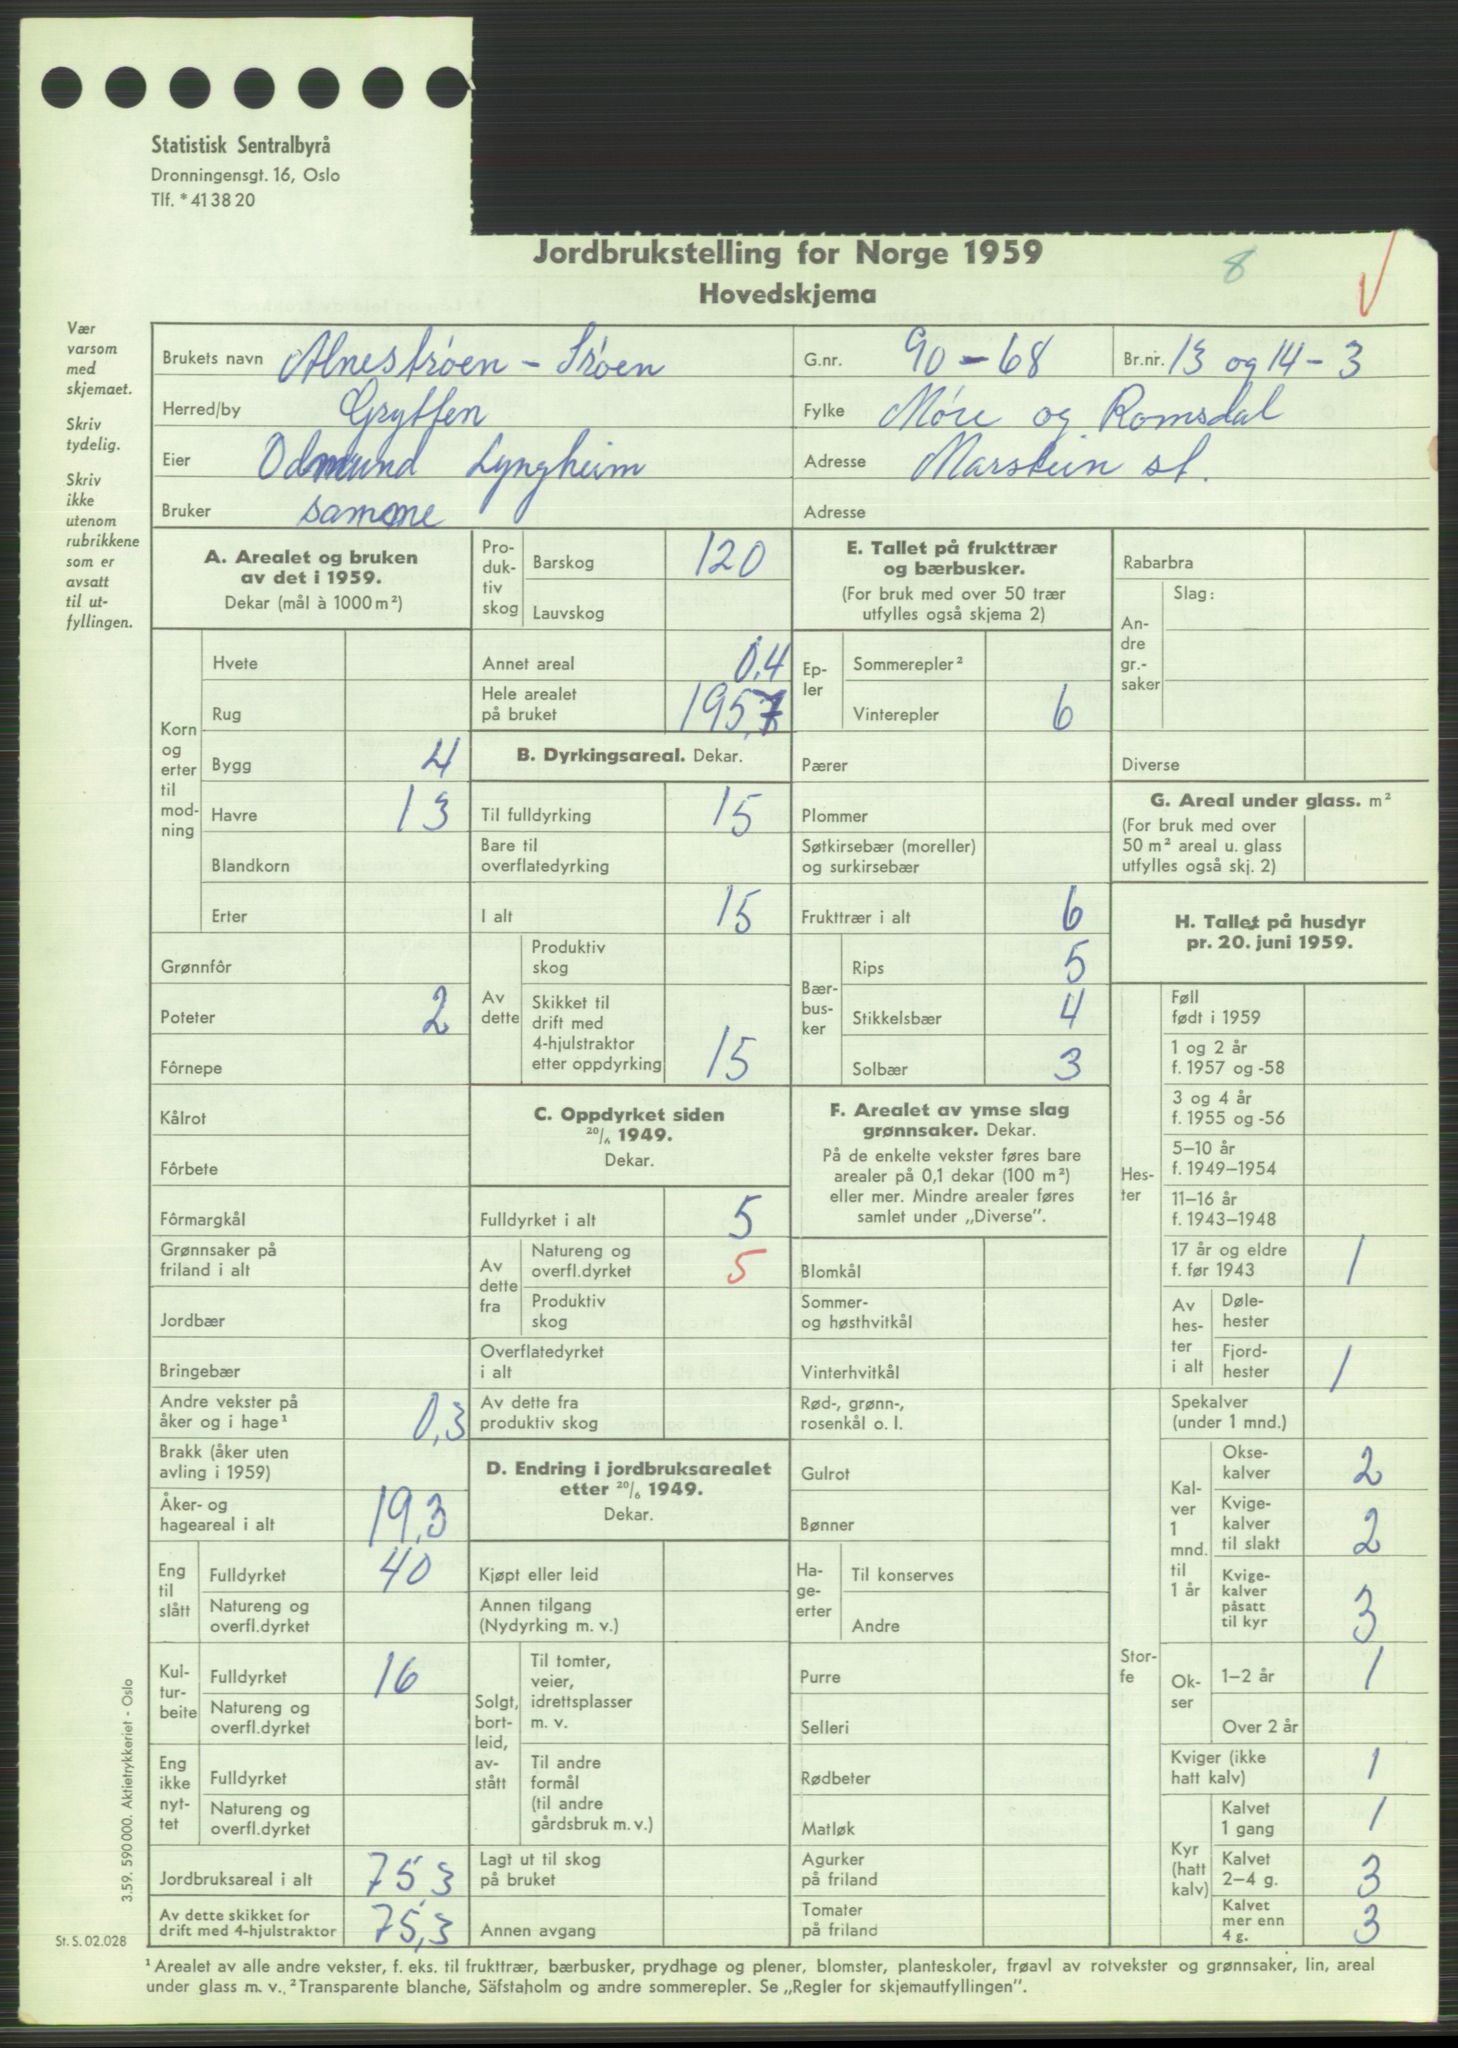 Statistisk Sentralbyrå
Dronningensgt. 16, Oslo
Tlf. * 41 38 20
Jordbrukstelling for Norge 1959
8
Hovedskjema
Vær
varsom
med
skjemaet.
Skriv
tydelig.
Skriv
ikke
utenom
rubrikkene
som er
avsatt
til ut-
fyllingen.
Brukets navn Alnestrøen - Trøen G.nr. 90 - 68 Br.nr. 13 og 14 - 3
Herred/by Grytten Fylke Møre og Romsdal
Eier Odmund Lyngheim Adresse Marstein st.
Bruker samme Adresse
A. Arealet og bruken
av det i 1959.
Dekar (mål à 1000 m²)
Korn
og
erter
til
mod-
ning
Hvete
Rug
Bygg 4
Havre 13
Blandkorn
Erter
Grønnfôr
Poteter 2
Fôrnepe
Kålrot
Fôrbete
Fôrmargkål
Grønnsaker på
friland i alt
Jordbær
Bringebær
Andre vekster på
åker og i hage¹ 0,3
Brakk (åker uten
avling i 1959)
Åker- og
hageareal i alt 19,3
Eng
til
slått
Fulldyrket 40
Natureng og
overfl.dyrket
Kul-
tur-
beite
Fulldyrket 16
Natureng og
overfl.dyrket
Eng
ikke
nyt-
tet
Fulldyrket
Natureng og
overfl.dyrket
Jordbruksareal i alt 75,3
Av dette skikket for
drift med 4-hjulstraktor 75,3
Pro-
duk-
tiv
skog
Barskog 120
Lauvskog
Annet areal 0,4
Hele arealet
på bruket 195,7
B. Dyrkingsareal. Dekar.
Til fulldyrking 15
Bare til
overflatedyrking
I alt 15
Av
dette
Produktiv
skog
Skikket til
drift med
4-hjulstraktor
etter oppdyrking 15
C. Oppdyrket siden
20/6 1949.
Dekar.
Fulldyrket i alt 5
Av
dette
fra
Natureng og
overfl.dyrket 5
Produktiv
skog
Overflatedyrket
i alt
Av dette fra
produktiv skog
D. Endring i jordbruksarealet
etter 20/6 1949.
Dekar.
Kjøpt eller leid
Annen tilgang
(Nydyrking m. v.)
Solgt,
bort-
leid,
av-
stått
Til tomter,
veier,
idrettsplasser
m. v.
Til andre
formål
(til andre
gårdsbruk m. v.)
Lagt ut til skog
på bruket
Annen avgang
E. Tallet på frukttrær
og bærbusker.
(For bruk med over 50 trær
utfylles også skjema 2)
Ep-
ler
Sommerepler²
Vinterepler 6
Pærer
Plommer
Søtkirsebær (moreller)
og surkirsebær
Frukttrær i alt 6
Bær-
bus-
ker
Rips 5
Stikkelsbær 4
Solbær 3
F. Arealet av ymse slag
grønnsaker. Dekar.
På de enkelte vekster føres bare
arealer på 0,1 dekar (100 m²)
eller mer. Mindre arealer føres
samlet under „Diverse”.
Blomkål
Sommer-
og høsthvitkål
Vinterhvitkål
Rød-, grønn-,
rosenkål o. l.
Gulrot
Bønner
Ha-
ge-
erter
Til konserves
Andre
Purre
Selleri
Rødbeter
Matløk
Agurker
på friland
Tomater
på friland
Rabarbra
An-
dre
gr.-
saker
Slag:
Diverse
G. Areal under glass. m²
(For bruk med over
50 m² areal u. glass
utfylles også skj. 2)
H. Tallet på husdyr
pr. 20. juni 1959.
Hes-
ter
Føll
født i 1959
1 og 2 år
f. 1957 og -58
3 og 4 år
f. 1955 og -56
5–10 år
f. 1949–1954
11–16 år
f. 1943–1948
17 år og eldre
f. før 1943 1
Av
hes-
ter
i alt
Døle-
hester
Fjord-
hester 1
Stor-
fe
Spekalver
(under 1 mnd.)
Kal-
ver
1
mnd.
til
1 år
Okse-
kalver 2
Kvige-
kalver
til slakt 2
Kvige-
kalver
påsatt
til kyr 3
Ok-
ser
1–2 år 1
Over 2 år
Kviger (ikke
hatt kalv) 1
Kyr
(hatt
kalv)
Kalvet
1 gang 1
Kalvet
2–4 g. 3
Kalvet
mer enn
4 g. 3
3.59. 590 000. Aktietrykkeriet - Oslo
St. S. 02.028
¹ Arealet av alle andre vekster, f. eks. til frukttrær, bærbusker, prydhage og plener, blomster, planteskoler, frøavl av rotvekster og grønnsaker, lin, areal
under glass m. v. ² Transparente blanche, Säfstaholm og andre sommerepler. Se „Regler for skjemautfyllingen”.